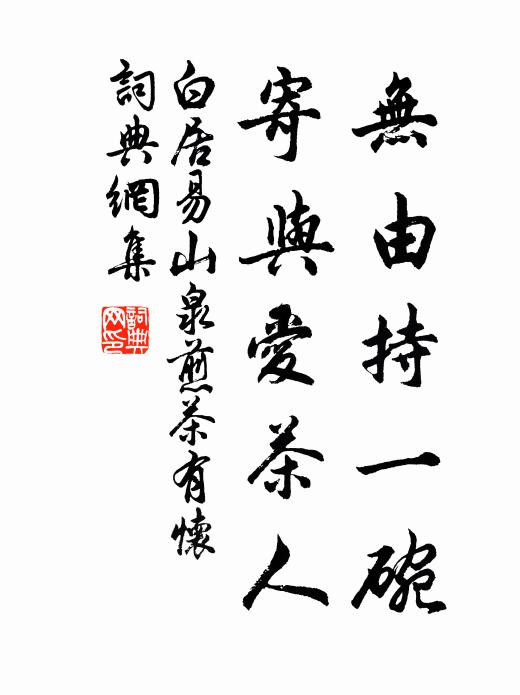 無由持一碗
寄與愛茶人
白居易山泉煎茶有懷
詞典網集
詞典网印